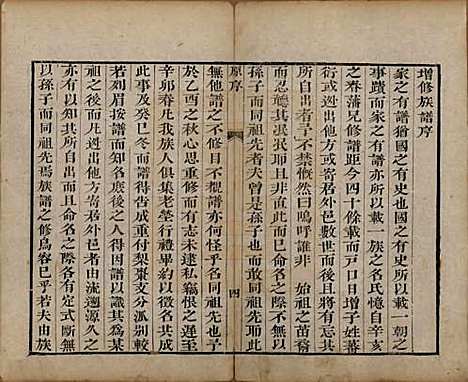 增修族譜序
家之有譜猶國之有史也國之有史所以載一朝之
事蹟而家之有譜亦所以載一族之名氏憶自辛卯
之齊藩兄修譜距今四十餘載而戶口日增子姓蕃
衍或遷出他方或寄居外邑數世而後尋流溯源不知
所自出者予不禁愀然曰嗚呼誰非
孫子而同祖先者夫曾是孫子而敢同祖先耶此
無他譜之不修目不覩譜亦何怪乎名同祖先也予
於乙酉之秋心思重修而有志未逮私竊恨之遲至
辛卯春凡我族人俱集老塋行禮畢約以徵各共成
此事及癸巳冬而譜得告成重付梨棗支分派別行行
若列眉按譜而知各名度後之人得因譜以識其為某
祖之後而凡遷出他方寄居外邑者由流遡源久之
亦有以知所自出而且命名之際各有定式斷無有
以孫子而同祖先焉族譜之修烏容已乎若夫由族
原序
四